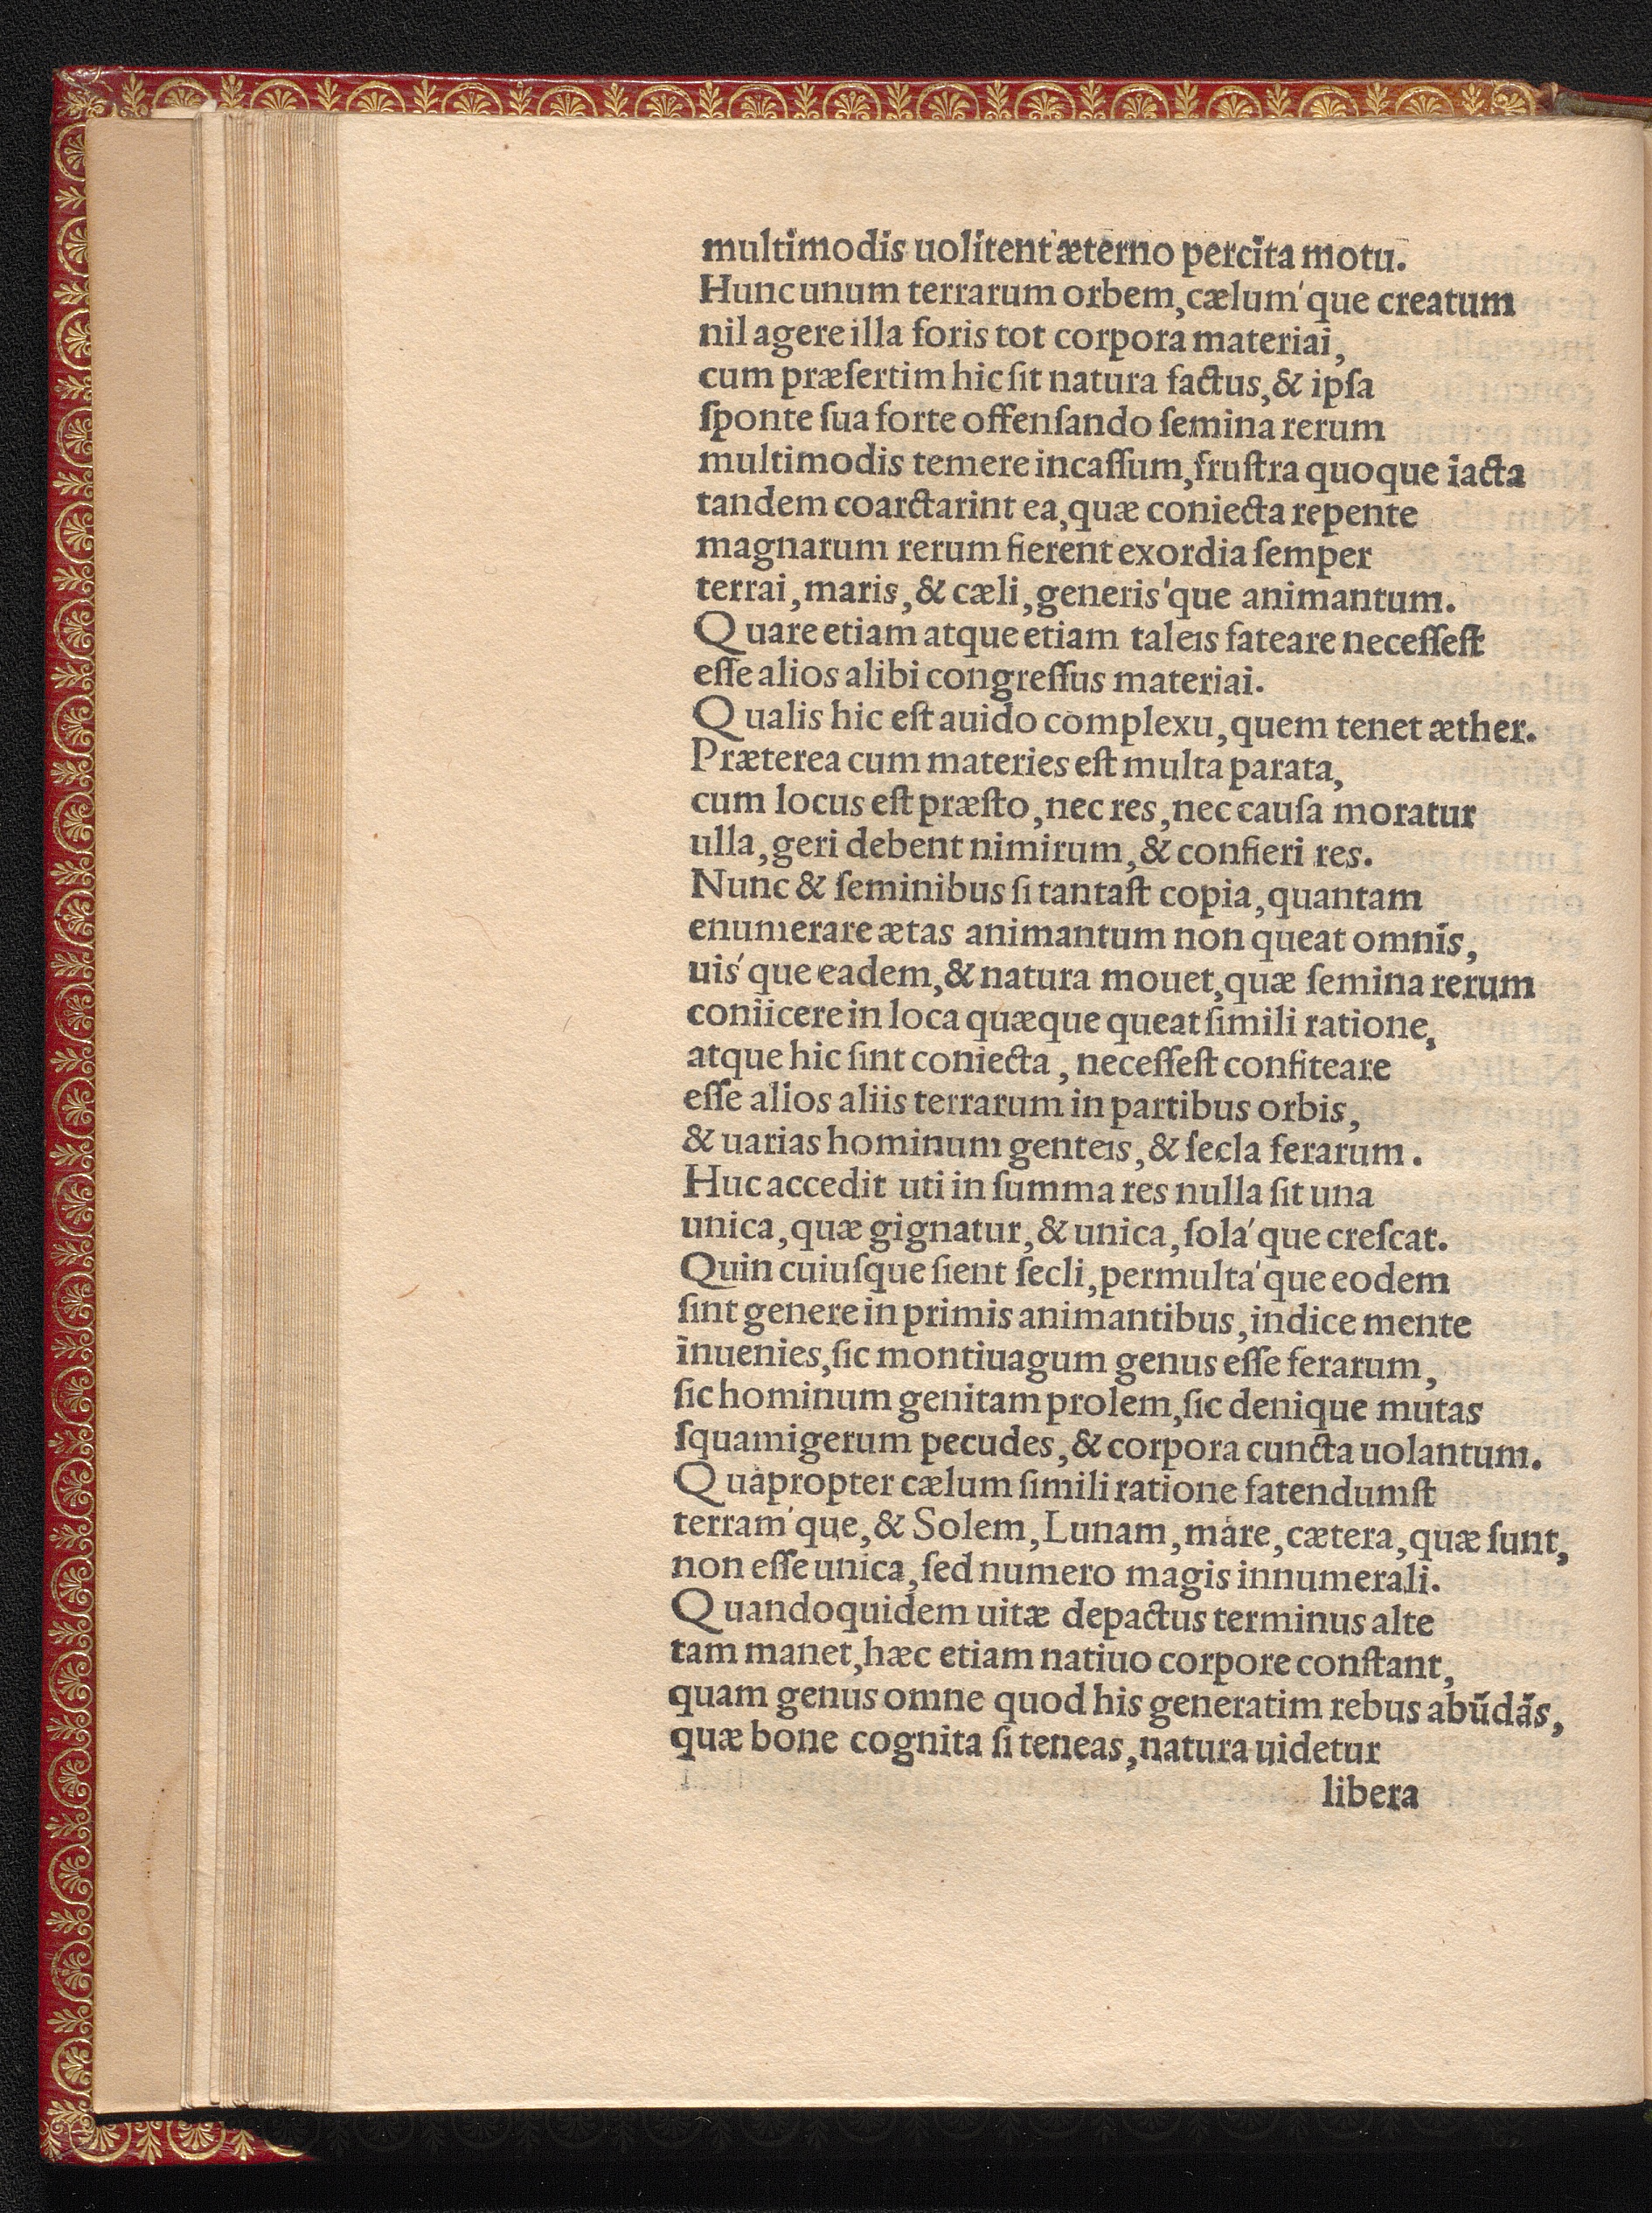 multimodis uolitent æterno percita motu.
Hunc unum terrarum orbem, cælum'que creatum
nil agere illa foris tot corpora materiai,
cum præſertim hic ſit natura factus, & ipſa
ſponte ſua forte offenſando ſemina rerum
multimodis temere incaſſum, fruſtra quoque iacta
tandem coarctarint ea, quæ coniecta repente
magnarum rerum fierent exordia ſemper
terrai, maris, & cæli, generis'que animantum.
Quare etiam atque etiam taleis fateare neceſſeſt
eſſe alios alibi congreſſus materiai.
Qualis hic eſt auido complexu, quem tenet æther.
Præterea cum materies eſt multa parata,
cum locus eſt præſto, nec res, nec cauſa moratur
ulla, geri debent nimirum, & confieri res.
Nunc & ſeminibus ſi tantaſt copia, quantam
enumerare ætas animantum non queat omnis,
uis'que eadem, & natura mouet, quæ ſemina rerum
coniicere in loca quæque queat ſimili ratione,
atque hic ſint coniecta, neceſſeſt confiteare
eſſe alios aliis terrarum in partibus orbis,
& uarias hominum genteis, & ſecla ferarum.
Huc accedit uti in ſumma res nulla ſit una
unica, quæ gignatur, & unica, ſola'que creſcat.
Quin cuiuſque ſient ſecli, permulta'que eodem
ſint genere in primis animantibus, indice mente
inuenies, ſic montiuagum genus eſſe ferarum,
ſic hominum genitam prolem, ſic denique mutas
ſquamigerum pecudes, & corpora cuncta uolantum.
Quapropter cælum ſimili ratione fatendumſt
terram'que, & Solem, Lunam, mare, cætera, quæ ſunt,
non eſſe unica, ſed numero magis innumerali.
Quandoquidem uitæ depactus terminus alte
tam manet, hæc etiam natiuo corpore conſtant,
quam genus omne quod his generatim rebus abūdās,
quæ bone cognita ſi teneas, natura uidetur
libera